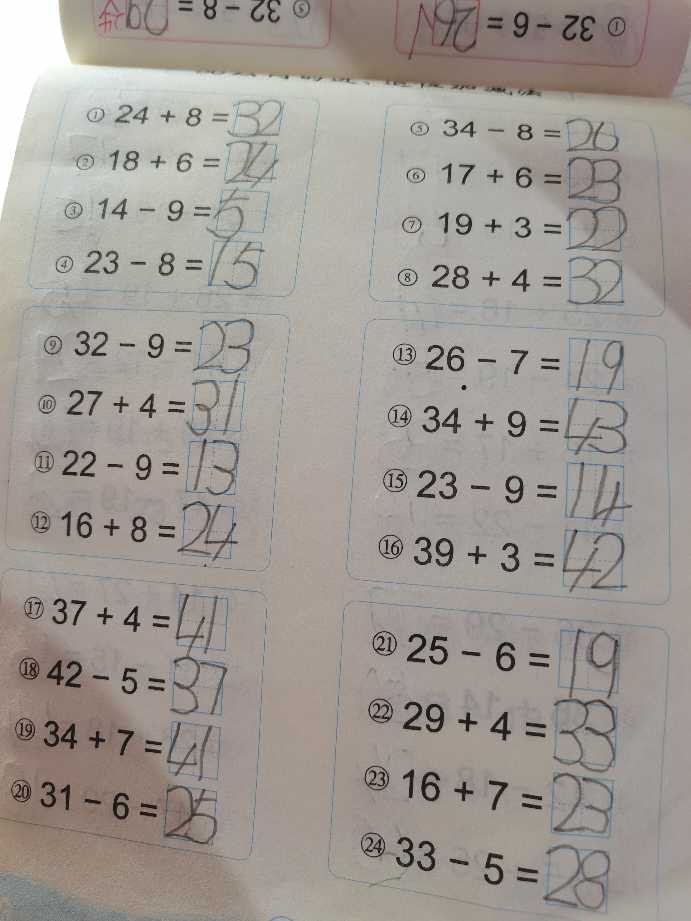 ⑤ 32 - 8 =
① 32 - 6 = 26
① 24 + 8 = 32
② 18 + 6 = 24
③ 14 - 9 = 5
④ 23 - 8 = 15
⑤ 34 - 8 = 26
⑥ 17 + 6 = 23
⑦ 19 + 3 = 22
⑧ 28 + 4 = 32
⑨ 32 - 9 = 23
⑩ 27 + 4 = 31
⑪ 22 - 9 = 13
⑫ 16 + 8 = 24
⑬ 26 - 7 = 19
⑭ 34 + 9 = 43
⑮ 23 - 9 = 14
⑯ 39 + 3 = 42
⑰ 37 + 4 = 41
⑱ 42 - 5 = 37
⑲ 34 + 7 = 41
⑳ 31 - 6 = 25
㉑ 25 - 6 = 19
㉒ 29 + 4 = 33
㉓ 16 + 7 = 23
㉔ 33 - 5 = 28